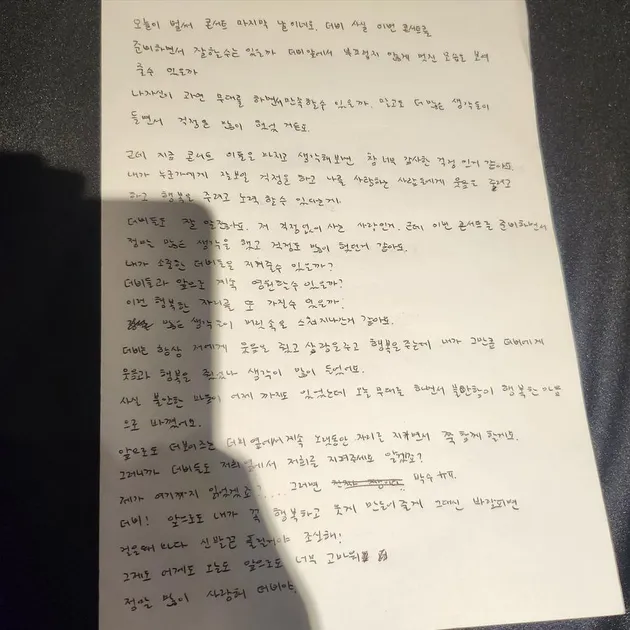 오늘이 벌써 콘서트 마지막 날이네요. 더비 사실 이번 콘서트를
준비하면서 잘할수는 있을까 더비앞에서 부끄럽지 않게 멋진 모습으로 보여
줄수 있을까
나자신이 과연 무대를 하면서 만족할수 있을까. 말고도 더 많은 생각들이
들면서 걱정은 많이 했었 거든요.
근데 지금 콘서트 이틀은 마치고 생각해보면 참 너무 감사한 걱정 인거 같아요.
내가 누군가에게 잘보일 걱정을 하고 나를 사랑하는 사람들에게 웃음을 주려고
하고 행복을 주려고 노력 할수 있다는게.
더비들도 잘 알잖아요. 저 걱정없이 사는 사람인거. 근데 이번 콘서트를 준비하면서
정말 많은 생각을 했고 걱정도 많이 했던거 같아요.
내가 소중한 더비들을 지켜줄수 있을까?
더비들과 앞으로 계속 영원할수 있을까?
이런 행복한 자리를 또 가질수 있을까.
많은 생각들이 머릿속을 스쳐지나간거 같아요.
더비는 항상 저에게 웃음을 줬고 사랑을 주고 행복을 주는데 내가 그만큼 더비에게
웃음과 행복을 줬었나 생각이 많이 들었어요.
사실 불안한 마음이 어제 까지도 있었는데 오늘 무대를 하면서 불안함이 행복한 마음
으로 바꼈어요.
앞으로도 더보이즈는 더비 옆에서 계속 오랫동안 자리를 지키면서 쭉 함께 할게요.
그러니까 더비들도 저희 옆에서 저희를 지켜주세요 알겠죠?
제가 여기까지 읽었겠죠?.... 그러면 박수 ㅠㅠ.
더비! 앞으로도 내가 꼭 행복하고 웃게 만들어 줄게 그대신 바람피면
걸을때 마다 신발끈 풀릴거야 조심해!
그제도 어제도 오늘도 앞으로도 너무 고마워
정말 많이 사랑해 더비야.